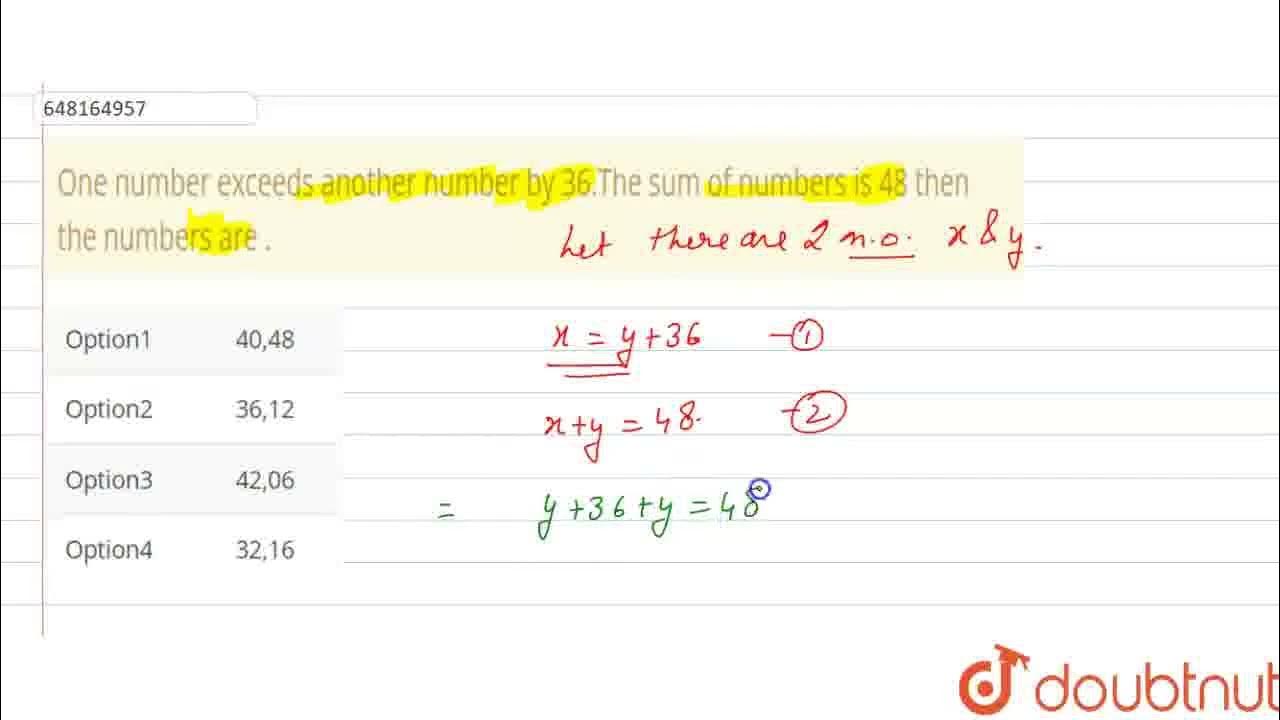 648164957
One number exceeds another number by 36.The sum of numbers is 48 then
the numbers are .
Let there are 2 n.o. x & y.
Option1 40,48
x = y+36 -①
Option2 36,12
x+y = 48. -②
Option3 42,06
= y+36+y = 48
Option4 32,16
doubtnut